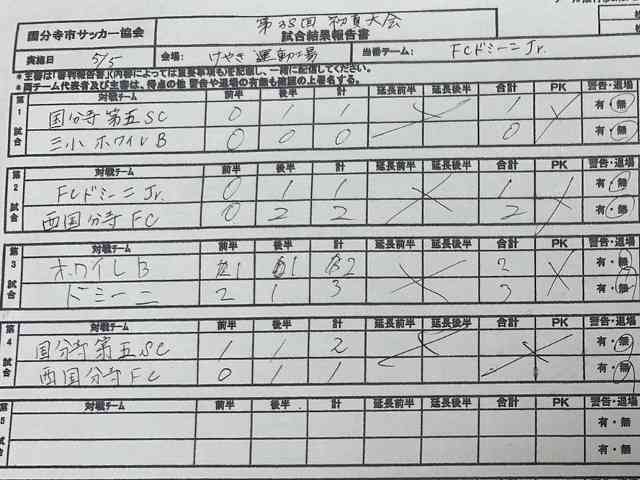 国分寺市サッカー協会 第38回 初夏大会
試合結果報告書
実施日 5/5 会場: けやき運動場 当番チーム: FCドミーニJr.
*主審は「審判報告書」(内容によっては重要事項も)を記載し、一緒に配信してください。
*両チーム代表者及び主審は、得点の他 警告や退場の有無も確認の上署名する。
第1試合 対戦チーム 前半 後半 計 延長前半 延長後半 合計 PK 警告・退場
国分寺第五SC 0 1 1 1 有・無
三小ホワイレB 0 0 0 0 有・無
第2試合 対戦チーム 前半 後半 計 延長前半 延長後半 合計 PK 警告・退場
FCドミーニJr. 0 1 1 1 有・無
西国分寺FC 0 2 2 2 有・無
第3試合 対戦チーム 前半 後半 計 延長前半 延長後半 合計 PK 警告・退場
ホワイレB 1 1 2 2 有・無
ドミーニ 2 1 3 3 有・無
第4試合 対戦チーム 前半 後半 計 延長前半 延長後半 合計 PK 警告・退場
国分寺第五SC 1 1 2 有・無
西国分寺FC 0 1 1 有・無
第5試合 対戦チーム 前半 後半 計 延長前半 延長後半 合計 PK 警告・退場
有・無
有・無